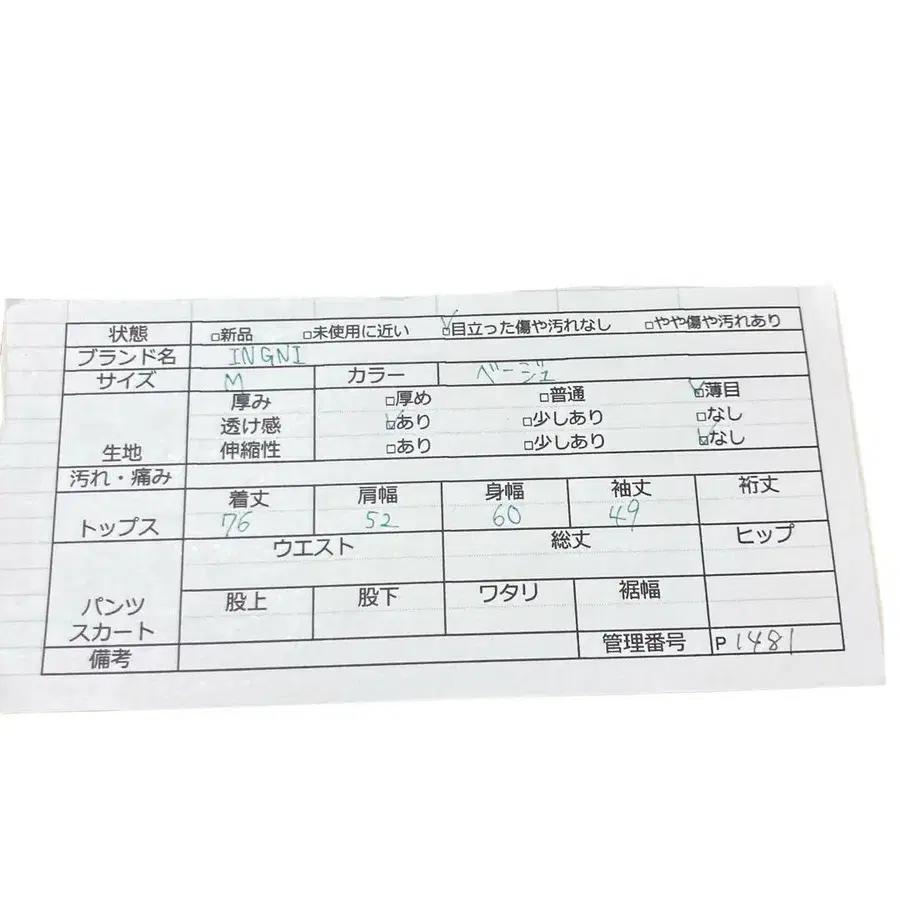 状態 □新品 □未使用に近い ☑目立った傷や汚れなし □やや傷や汚れあり
ブランド名 INGNI
サイズ M カラー ベージュ
厚み □厚め □普通 ☑薄目
透け感 ☑あり □少しあり □なし
生地 伸縮性 □あり □少しあり ☑なし
汚れ・痛み
着丈 肩幅 身幅 袖丈 裄丈
トップス 76 52 60 49
ウエスト 総丈 ヒップ
パンツ
スカート
股上 股下 ワタリ 裾幅
備考 管理番号 P1481